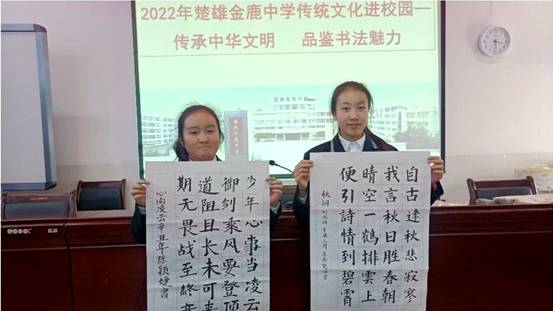 2022年楚雄金鹿中学传统文化进校园—
传承中华文明 品鉴书法魅力
少年心事当凌云
御剑乘风要登顶
道阻且长未可来
期无畏战至终章
心向凌云 辛丑年 陈颖婕書
自古逢秋悲寂寥
我言秋日胜春朝
晴空一鹤排雲上
便引詩情到碧霄
秋词 刘禹锡 辛丑